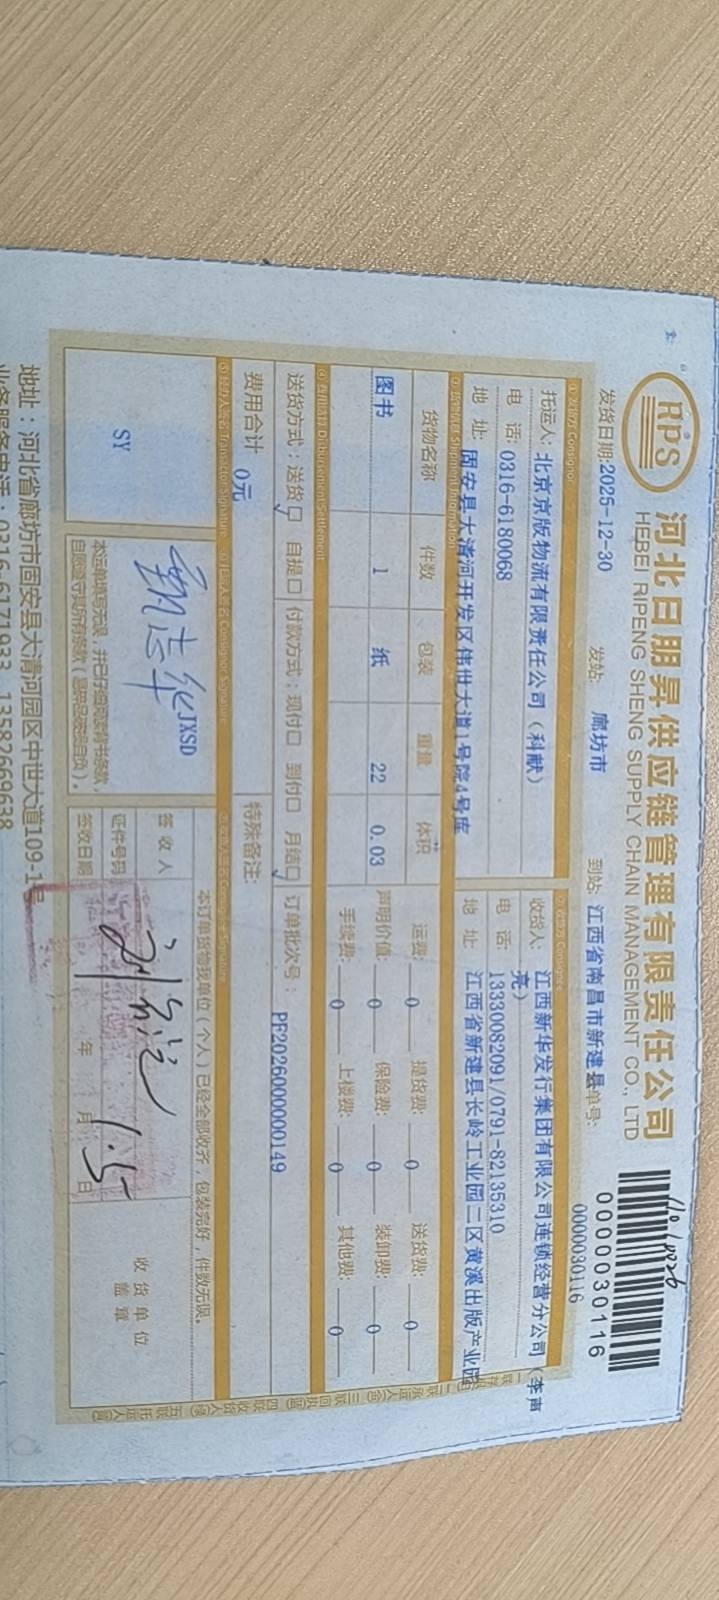 RPS
河北日朋昇供应链管理有限责任公司
HEBEI RIPENG SHENG SUPPLY CHAIN MANAGEMENT CO., LTD
0000030116
发货日期:2025-12-30 发站: 廊坊市 到站: 江西省南昌市新建县单号: 0000030116
托运人: 北京京版物流有限责任公司（科献）
电 话: 0316-6180068
地 址: 固安县大清河开发区伟世大道1号院4号库
收货人: 江西新华发行集团有限公司连锁经营分公司（李声亮）
电 话: 13330082091/0791-82135310
地 址: 江西省新建县长岭工业园二区黄溪出版产业园
货物名称 件数 包装 重量 体积
图书 1 纸 22 0.03
运费: 0 提货费: 0 送货费: 0
声明价值: 0 保险费: 0 装卸费: 0
手续费: 0 上楼费: 0 其他费: 0
送货方式: 送货☑ 自提口 付款方式: 现付口 到付口 月结☑ 订单批次号: PF2026000000149
费用合计 0元 特殊备注:
SY
JXSD
本订单货物现单位（个人）已经全部收齐，包装完好，件数无误。
签 收 人
证件号码
签收日期 年 月 日
1.5
收货单位
盖 章
地址：河北省廊坊市固安县大清河园区中世大道109-1号
业务服务电话：0316-6171933 13582669638